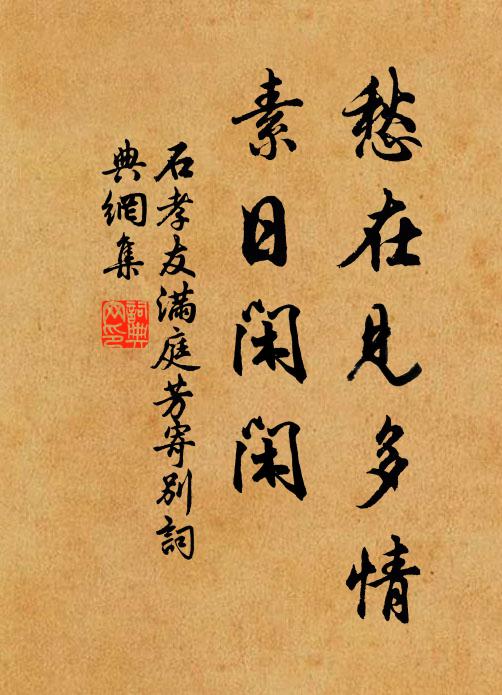 愁在見多情
素日閑閑
石孝友滿庭芳寄別詞
典網集
詞典
网印